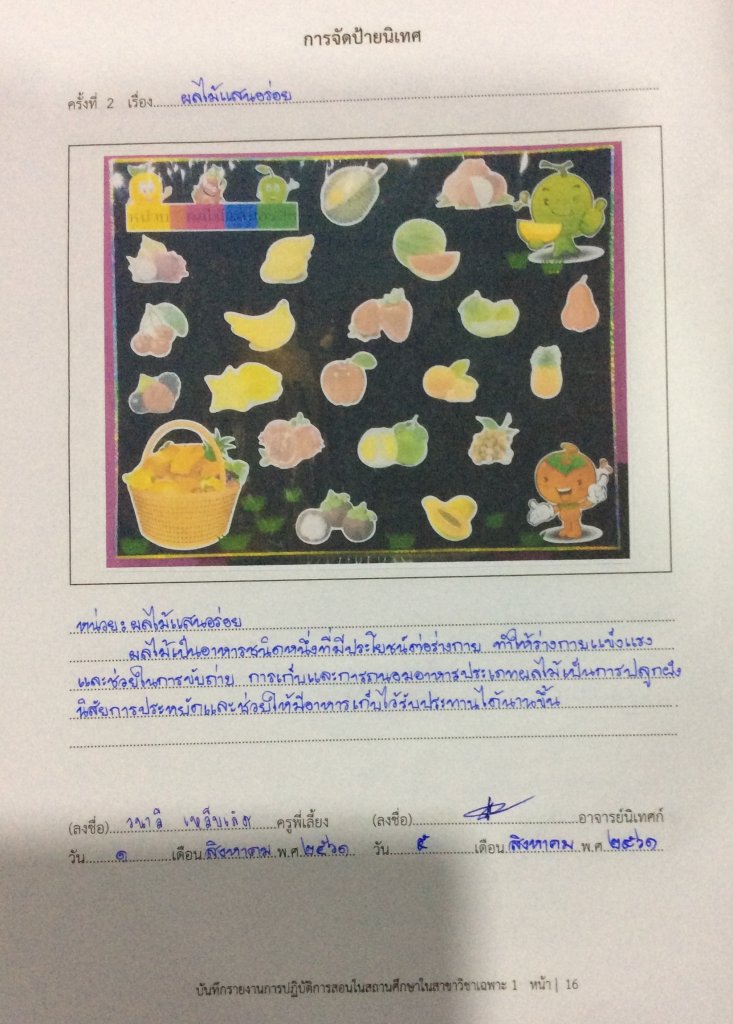 การจัดป้ายนิเทศ
ครั้งที่ 2 เรื่อง ผลไม้แสนอร่อย
หน่วย ผลไม้แสนอร่อย
หน่วย : ผลไม้แสนอร่อย
ผลไม้เป็นอาหารชนิดหนึ่งที่มีประโยชน์ต่อร่างกาย ทำให้ร่างกายแข็งแรง
และช่วยในการขับถ่าย การเก็บและการถนอมอาหารประเภทผลไม้เป็นการปลูกฝัง
นิสัยการประหยัดและช่วยให้มีอาหารเก็บไว้รับประทานได้นานขึ้น
(ลงชื่อ) ครูพี่เลี้ยง (ลงชื่อ) อาจารย์นิเทศก์
วัน ๑ เดือน สิงหาคม พ.ศ ๒๕๖๑ วัน ๕ เดือน สิงหาคม พ.ศ. ๒๕๖๑
บันทึกรายงานการปฏิบัติการสอนในสถานศึกษาในสาขาวิชาเฉพาะ 1 หน้า | 16